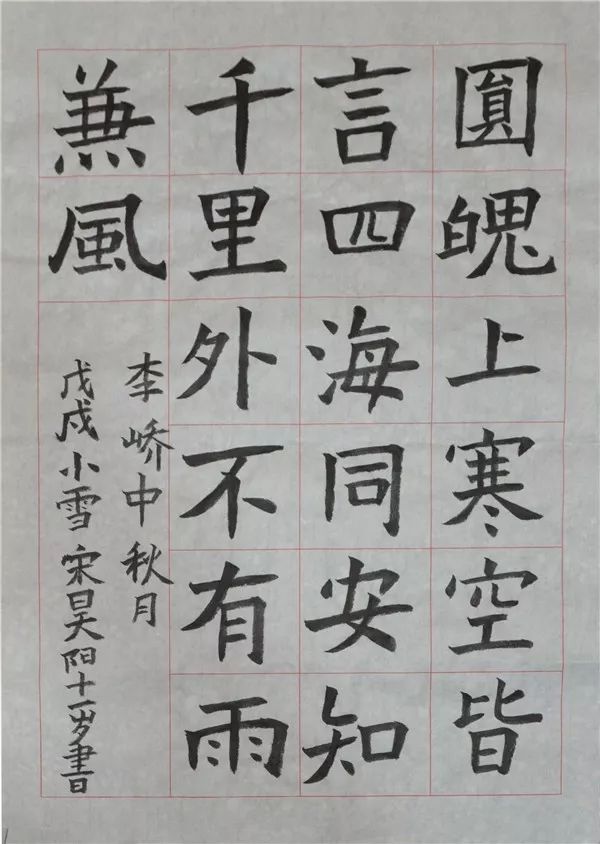 圎魄上寒空皆
言四海同安知
千里外不有雨
兼風
李嶠中秋月
戊戌小雪宋昊阳十一岁書